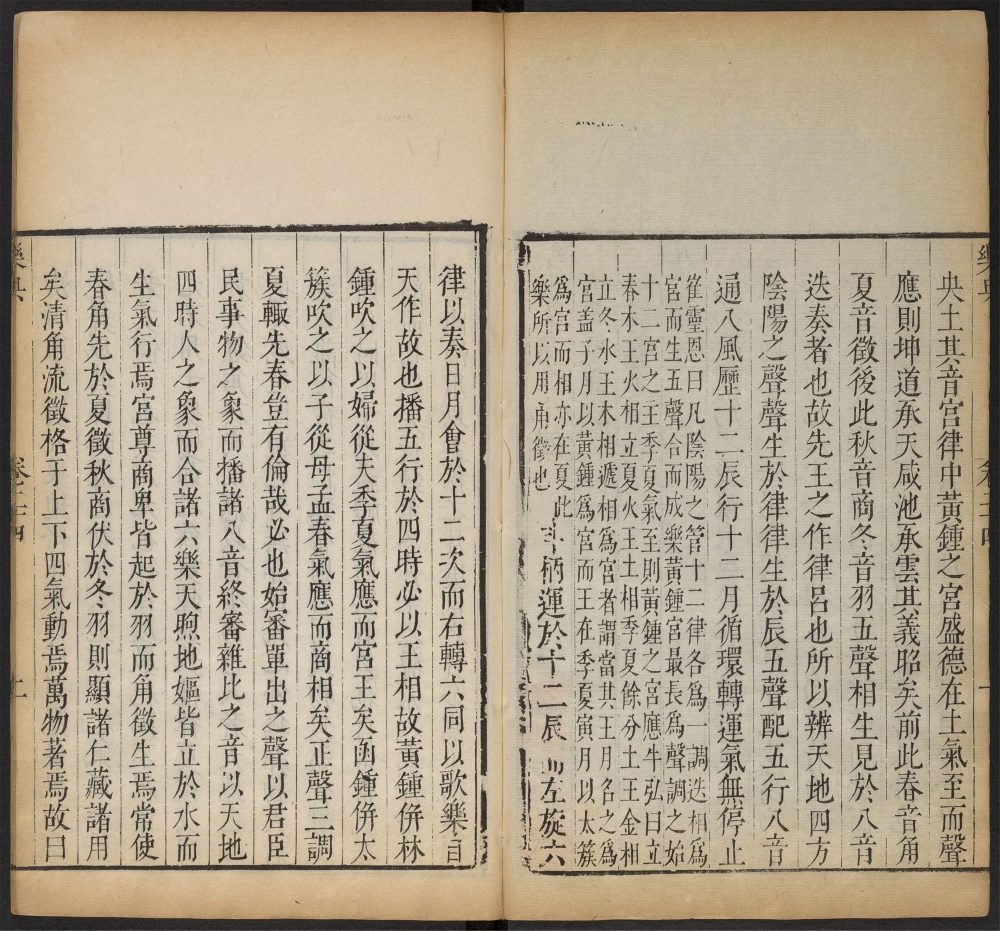 樂典
卷三十四
十
央土其音宮律中黃鍾之宮盛德在土氣至而聲
應則坤道承天咸池承雲其義昭矣前此春音角
夏音徵後此秋音商冬音羽五聲相生見於八音
迭奏者也故先王之作律呂也所以辨天地四方
陰陽之聲聲生於律律生於辰五聲配五行八音
通八風歷十二辰行十二月循環轉運氣無停止
崔靈恩曰凡陰陽之管十二律各為一調迭相爲
宮而生五聲合而成樂黃鍾宮最長爲聲調之始
十二宮之主季夏氣至則黃鍾之宮應牛弘曰立
春木王火相立夏火王土相季夏餘分土王金相
立冬水王木相遞相爲宮者謂當其王月名之爲
宮盖子月以黃鍾爲宮而王在季夏寅月以太簇
爲宮而相亦在夏此
樂所以用角徵也
斗柄運於十二辰而左旋六
律以奏日月會於十二次而右轉六同以歌樂自
天作故也播五行於四時必以王相故黃鍾併林
鍾吹之以婦從夫季夏氣應而宮王矣函鍾併太
簇吹之以子從母孟春氣應而商相矣正聲三調
夏輙先春豈有倫哉必也始審單出之聲以君臣
民事物之象而播諸八音終審雜比之音以天地
四時人之象而合諸六樂天煦地嫗皆立於水而
生氣行焉宮尊商卑皆起於羽而角徵生焉常使
春角先於夏徵秋商伏於冬羽則顯諸仁藏諸用
矣清角流徵格于上下四氣動焉萬物著焉故曰
樂典
卷三十四
十一